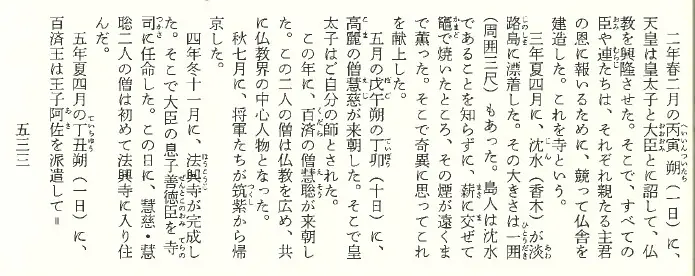 二年春二月の丙寅朔(一日)に、
天皇は皇太子と大臣とに詔して、仏
教を興隆させた。そこで、すべての
臣や連たちは、それぞれ親たる主君
の恩に報いるために、競って仏舎を
建造した。これを寺という。
三年夏四月に、沈水(香木)が淡
路島に漂着した。その大きさは一囲
(周囲三尺)もあった。島人は沈水
であることを知らずに、薪に交ぜて
竈で焼いたところ、その煙が遠くま
で薫った。そこで奇異に思ってこれ
を献上した。
五月の戊午朔の丁卯(十日)に、
高麗の僧慧慈が来朝した。そこで皇
太子はご自分の師とされた。
この年に、百済の僧慧聡が来朝し
た。この二人の僧は仏教を広め、共
に仏教界の中心人物となった。
秋七月に、将軍たちが筑紫から帰
京した。
四年冬十一月に、法興寺が完成し
た。そこで大臣の息子善徳臣を寺
司に任命した。この日に、慧慈・慧
聡二人の僧は初めて法興寺に入り住
んだ。
五年夏四月の丁丑朔(一日)に、
百済王は王子阿佐を派遣して=
五三三